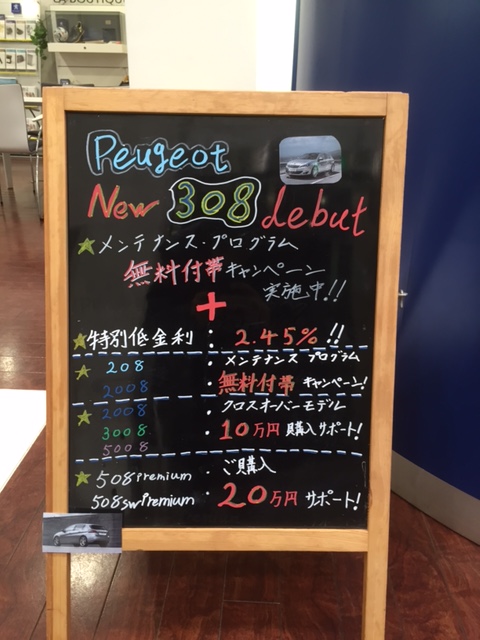 LA BOUTIQUE
Peugeot
New 308 debut
★メンテナンス・プログラム
無料付帯キャンペーン
実施中!!
+
★特別低金利 : 2.45%!!
★ 208 : メンテナンス プログラム
2008 無料付帯 キャンペーン!
★ 2008 : クロスオーバーモデル
3008 : 10万円 購入サポート!
5008
★ 508 Premium : ご購入
508sw Premium : 20万円 サポート!